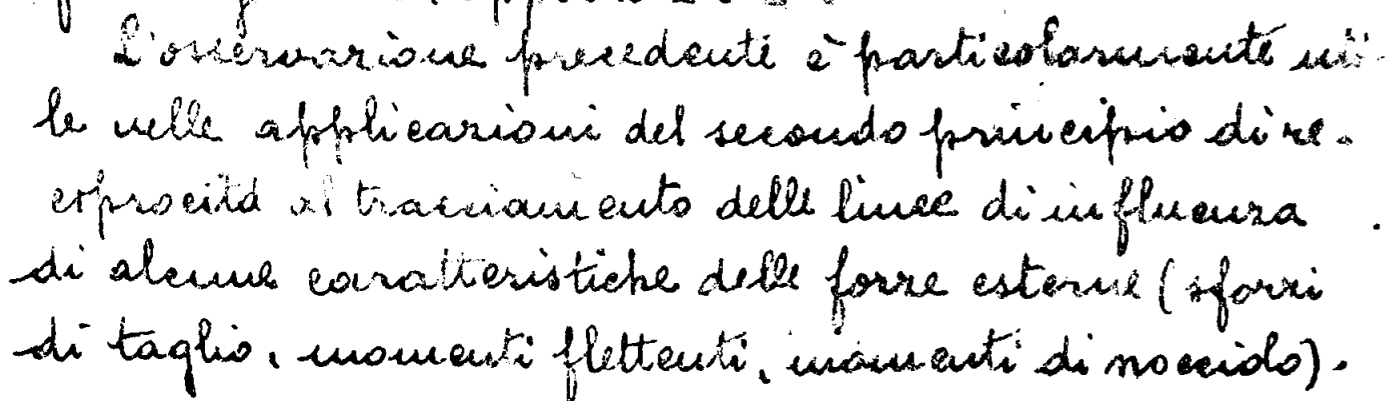 L'osservazione precedente è particolarmente uti-
le nelle applicazioni del secondo principio di re-
ciprocità al tracciamento delle linee di influenza
di alcune caratteristiche delle forze esterne (sforzi
di taglio, momenti flettenti, momenti di nocciolo).